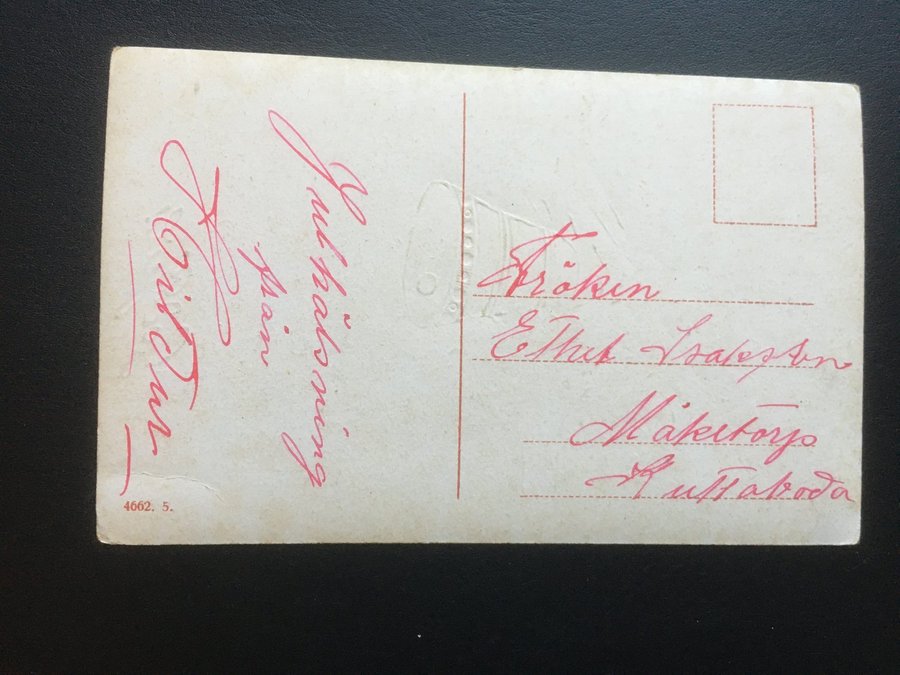 Julhälsning
från
Fröken
Ethel Isaksson
Måketorp
Kuttaboda
4662. 5.